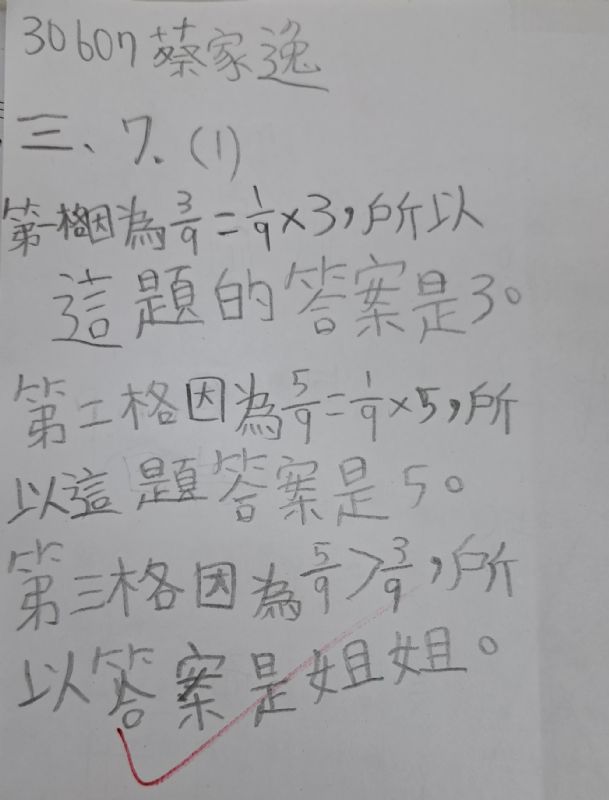 30607 蔡家逸
三、7.(1)
第一格因為3/9=1/9×3，所以
這題的答案是3。
第二格因為5/9=1/9×5，所
以這題答案是5。
第三格因為5/9>3/9，所
以答案是姐姐。